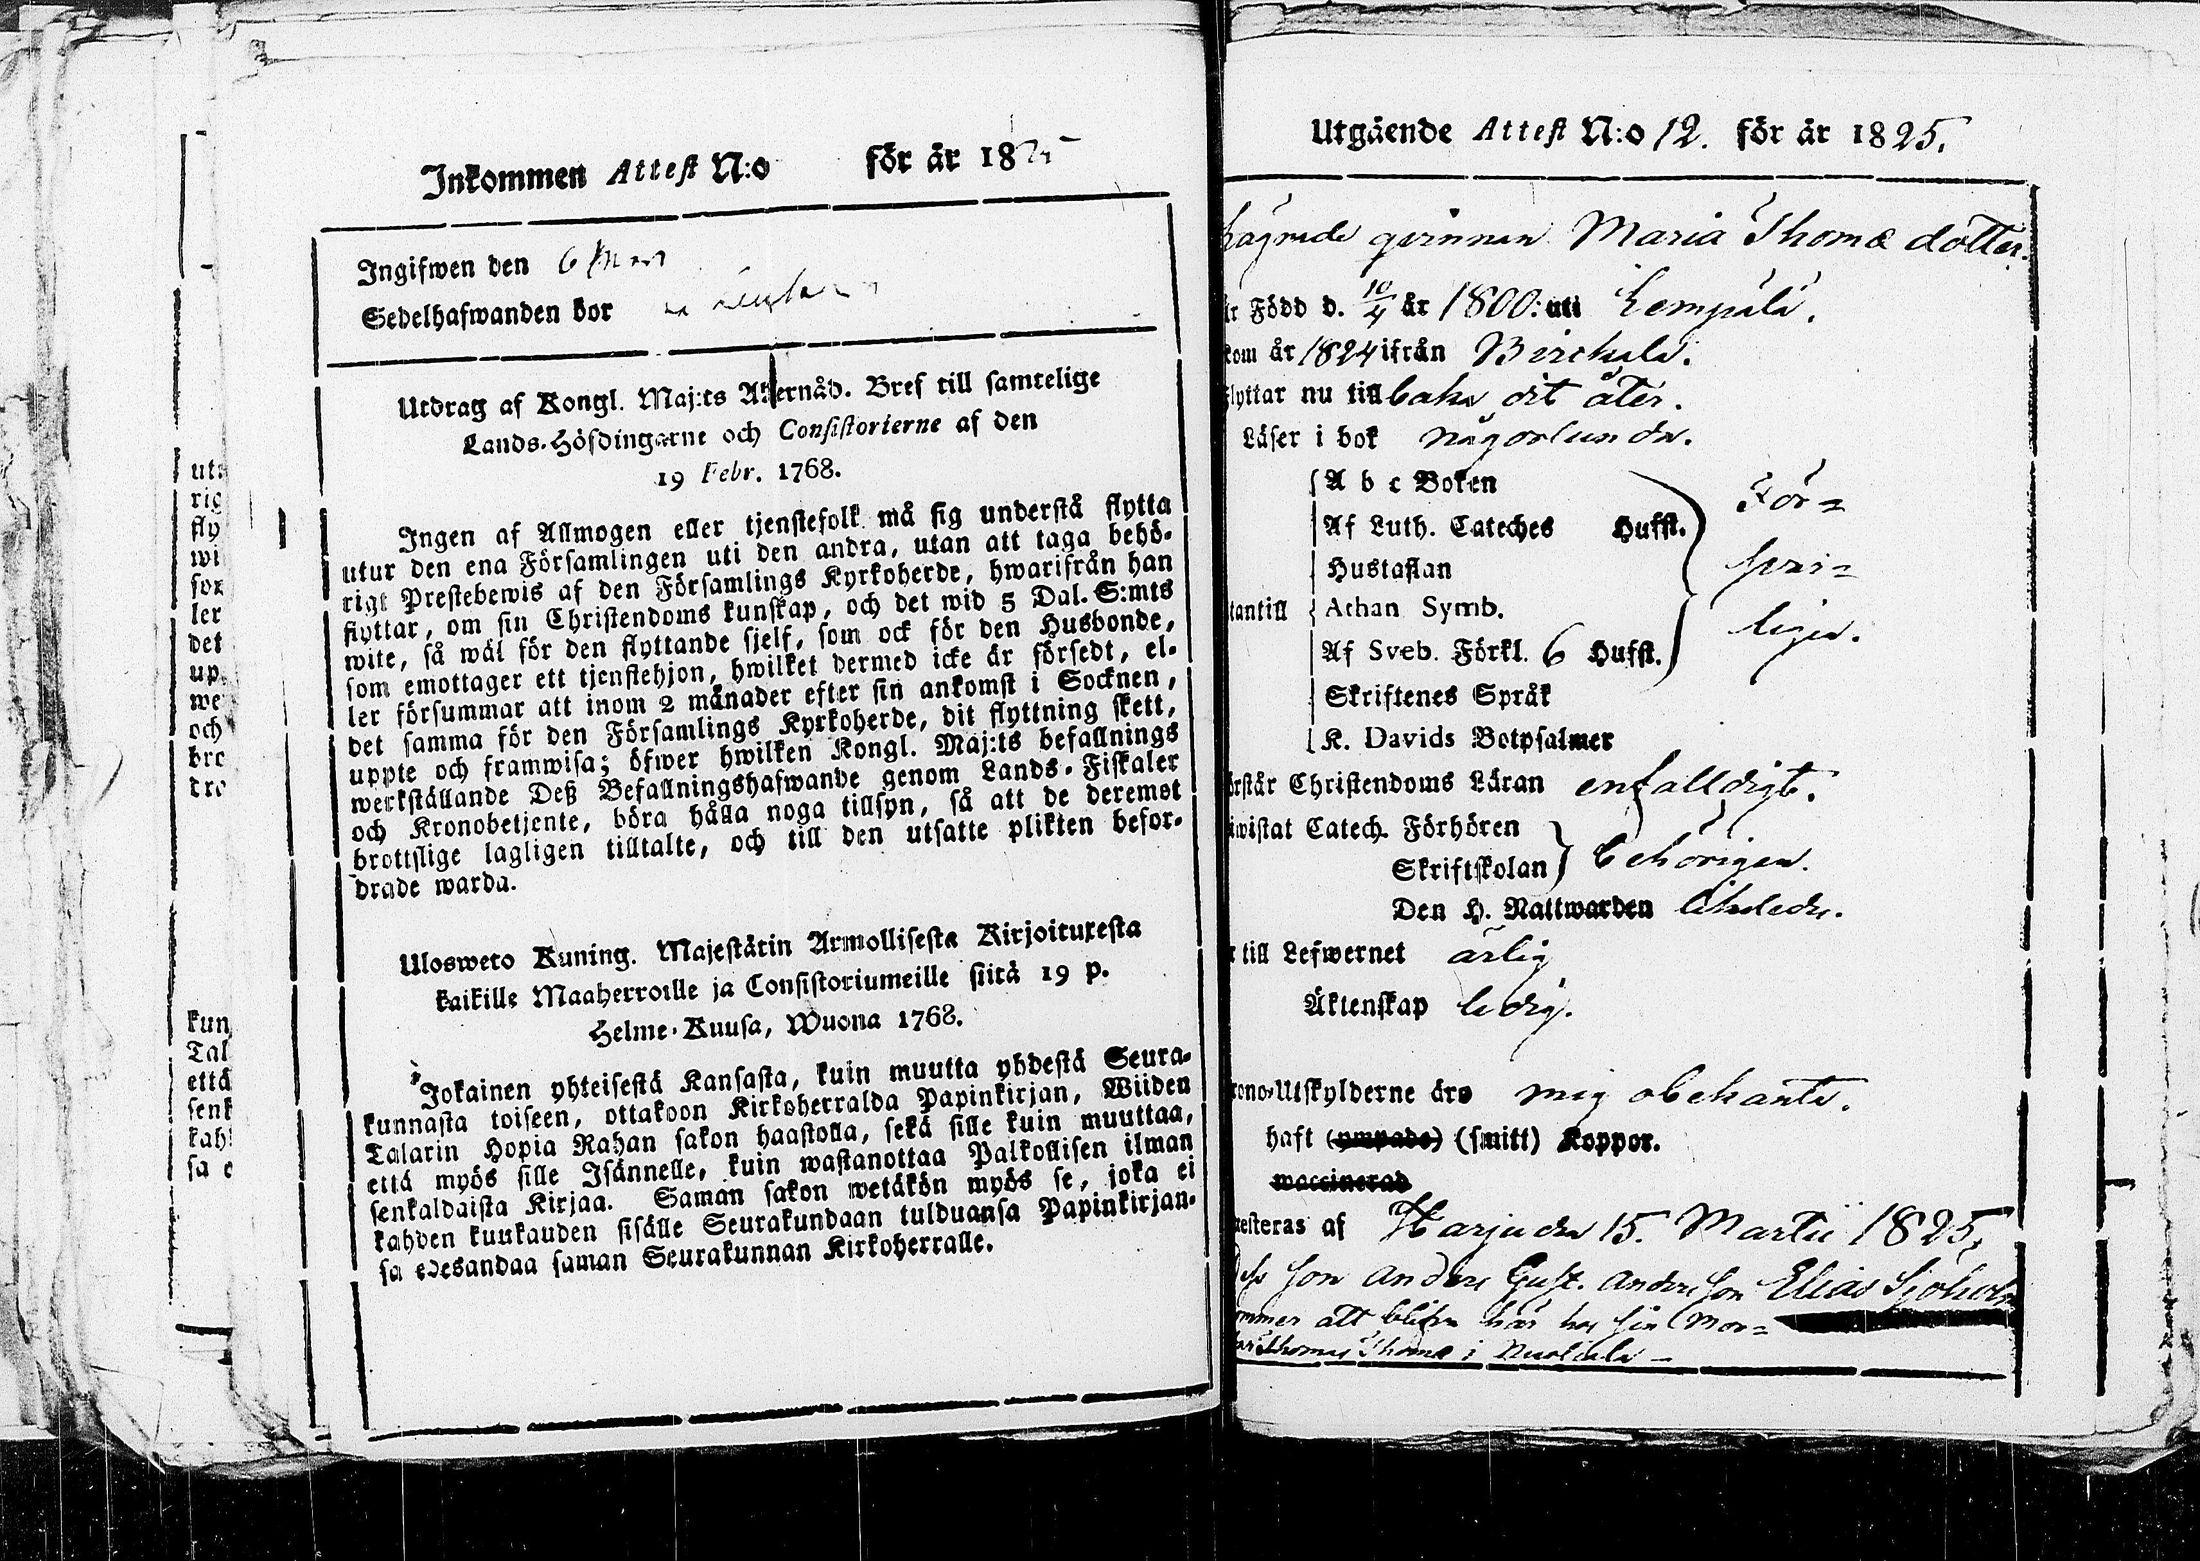 Inkommen Attest N:o för år 1825
Ingifwen den 6
Sedelhafwanden bor
Utdrag af Kongl. Maj:ts Allernåd. Bref till samtelige
Lands-Höfdingarne och Consistorierne af den
19 Febr. 1768.
Ingen af Allmogen eller tjenstefolk må sig understå flytta
utur den ena Församlingen uti den andra, utan att taga behö-
rigt Prestebewis af den Församlings Kyrkoherde, hwarifrån han
flyttar, om sin Christendoms kunskap, och det wid 5 Dal. S:mts
wite, så wäl för den flyttande sjelf, som ock för den Husbonde,
som emottager ett tjenstehjon, hwilket dermed icke är försedt, el-
ler försummar att inom 2 månader efter sin ankomst i Socknen,
det samma för den Församlings Kyrkoherde, dit flyttning skett,
uppte och framwisa; öfwer hwilken Kongl. Maj:ts befallnings
werkställande Deß Befallningshafwande genom Lands-Fiskaler
och Kronobetjente, böra hålla noga tillsyn, så att de deremot
brottslige lagligen tilltalte, och till den utsatte plikten befor-
drade warda.
Ulosweto Kuning. Majestätin Armollisesta Kirjoituxesta
kaikille Maaherroille ja Consistoriumeille siitä 19 p.
Helme-Kuusa, Wuona 1768.
Jokainen yhteisestä Kansasta, kuin muutta yhdestä Seura-
kunnasta toiseen, ottakoon Kirkoherralda Papinkirjan, Wiiden
Talarin Hopia Rahan sakon haastolla, sekä sille kuin muuttaa,
että myös sille Isännelle, kuin wastanottaa Palkollisen ilman
senkaldaista Kirjaa. Saman sakon wetäkön myös se, joka ei
kahden kuukauden sisälle Seurakundaan tulduansa Papinkirjan-
sa edesandaa saman Seurakunnan Kirkoherralle.
Utgående Attest N:o 12. för år 1825.
qvinnan Maria Thomæ dotter.
är Född d. 10/4 år 1800: uti Lempälä.
kom år 1824 ifrån Birchala.
Flyttar nu till baka dit åter.
Läser i bok någorlunda.
A b c Boken
Af Luth. Cateches Hufst. För=
Hustaflan svar=
utantill Athan Symb.
Af Sveb. Förkl. 6 Hufst. ligen.
Skriftenes Språk
K. Davids Botpsalmer
förstår Christendoms Läran enfalldigt.
biwistat Catech. Förhören
Skriftskolan behörigen.
Den H. Nattwarden likaledes.
är till Lefwernet ärlig
Äktenskap ledig.
Krono-Utskylderne äro mig obekanta.
haft (ympade) (smitt) Koppor.
waccinerad
attesteras af Harju den 15. Martii 1825,
Dess son Anders Gust. Andersson Elias Sjöholm
kommer att blifva här hos sin Mor=
Thomas Thomæ i